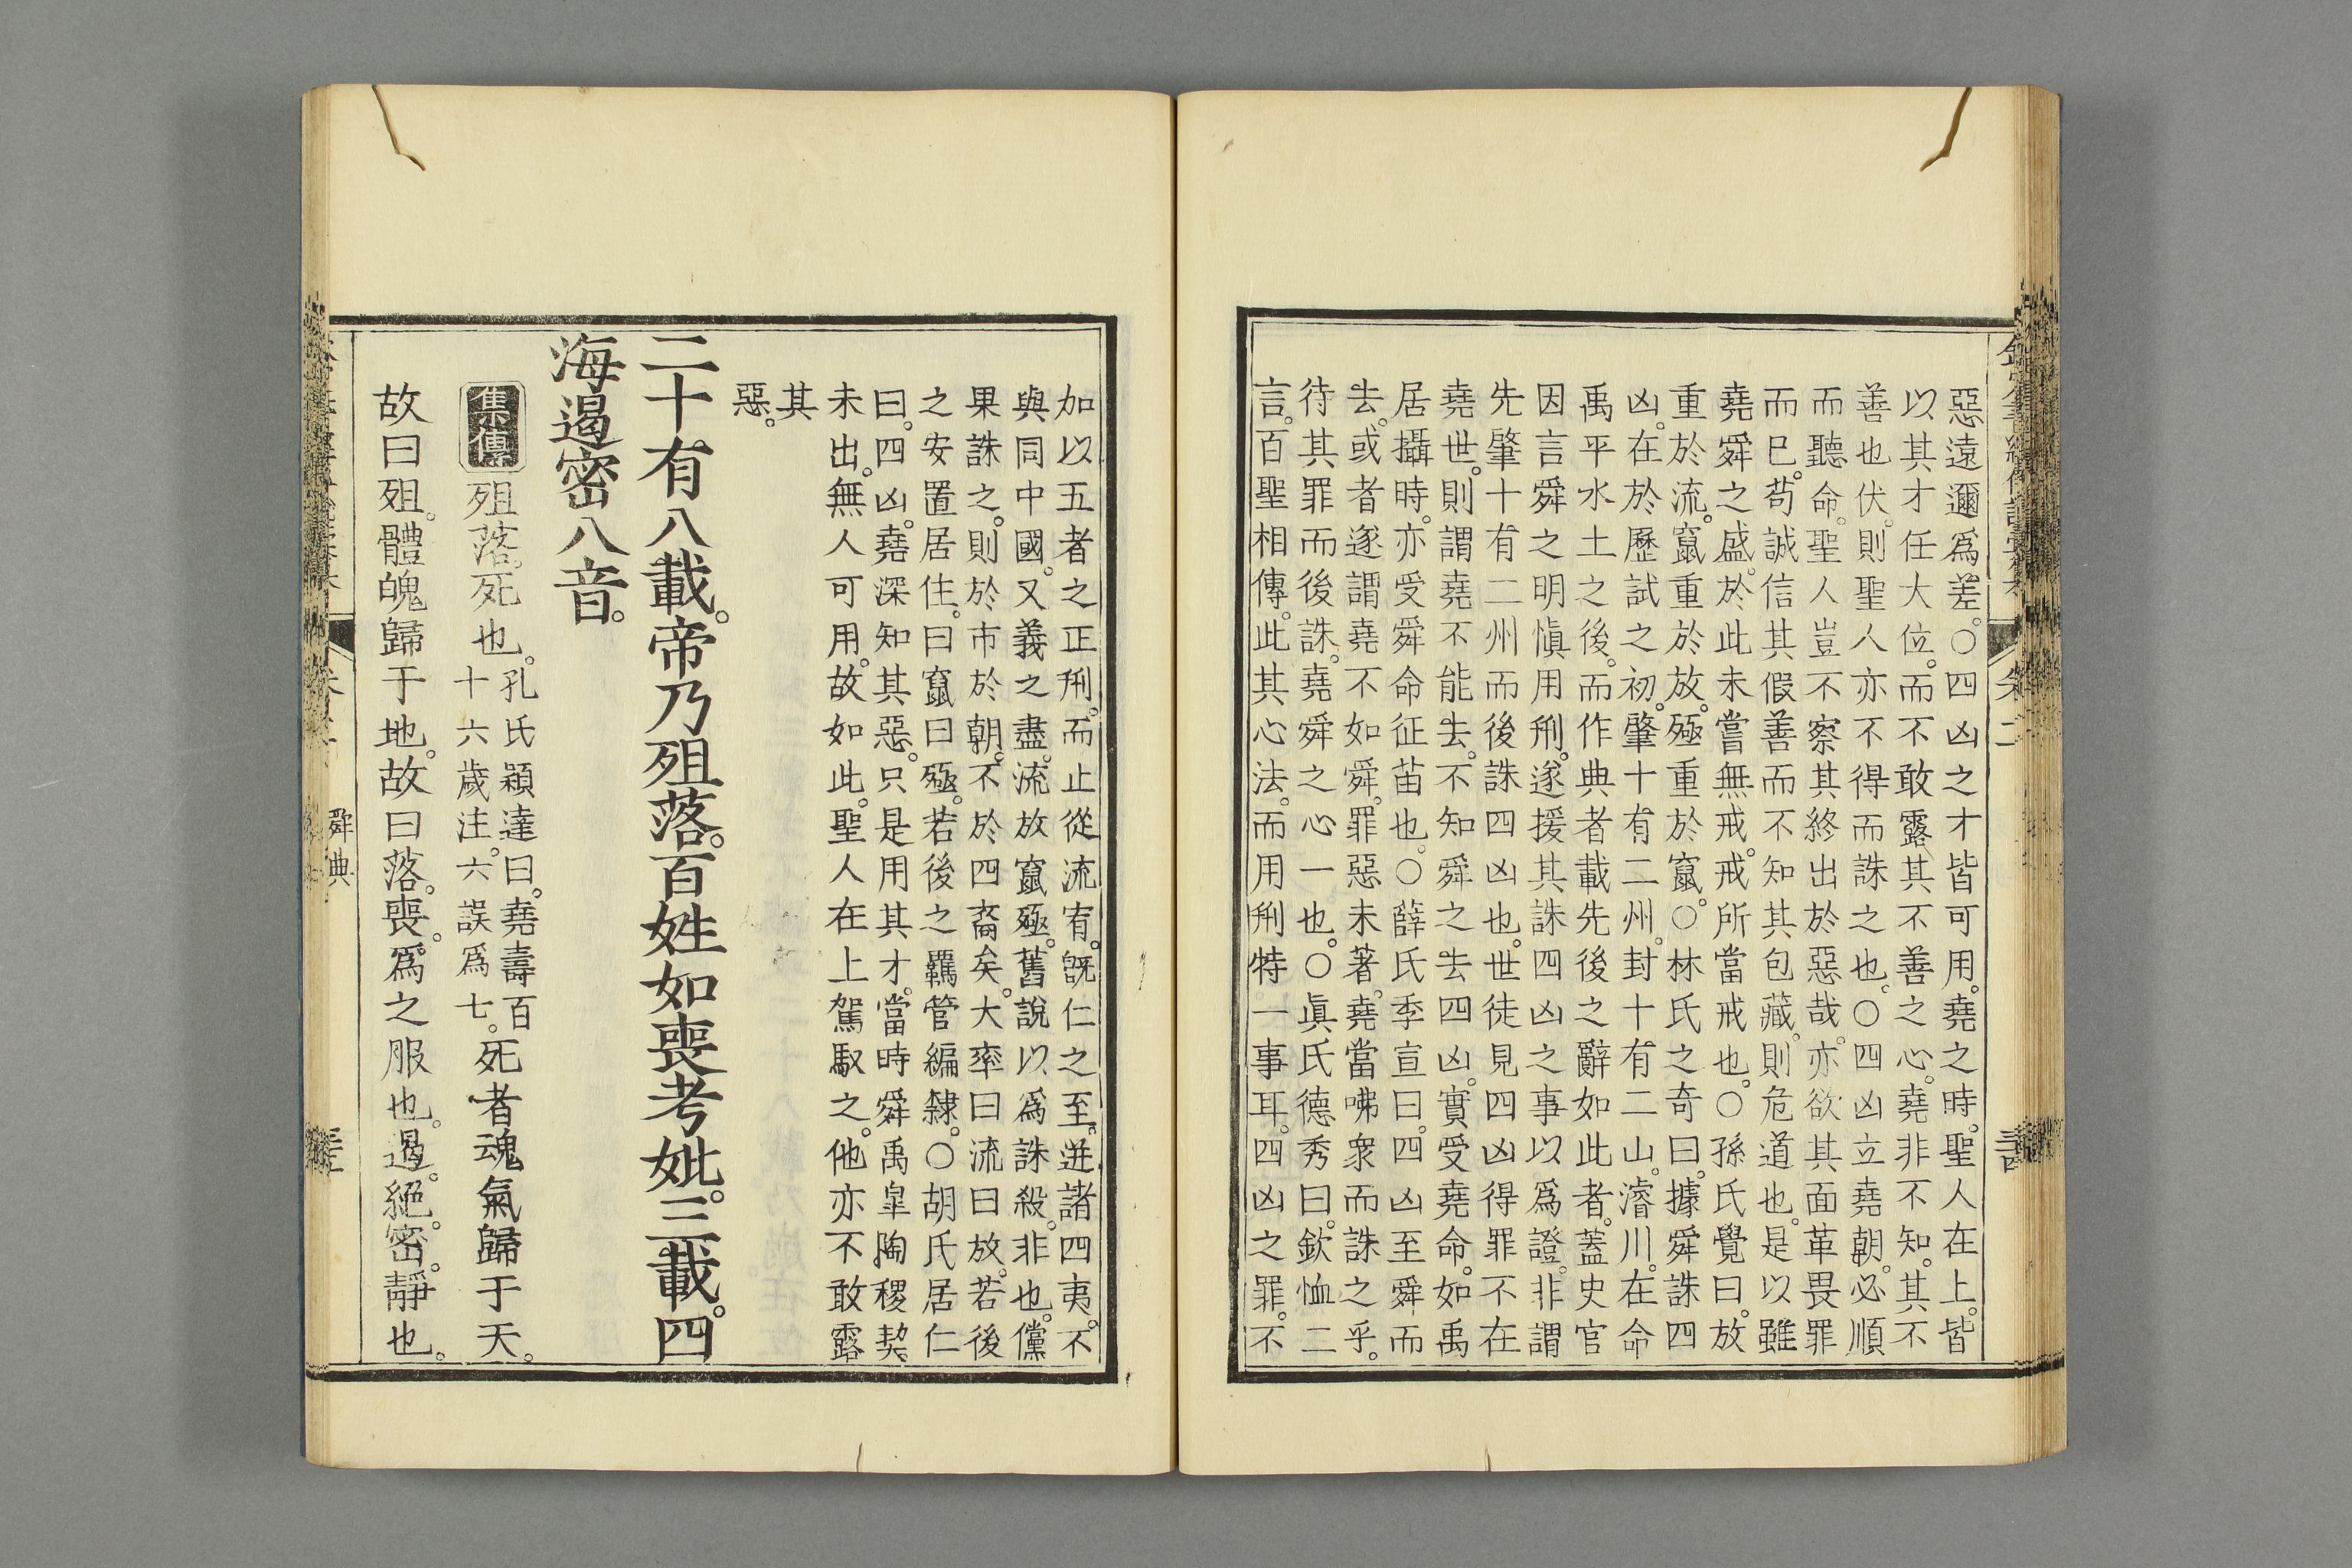 惡遠邇爲差。○四凶之才皆可用。堯之時。聖人在上。皆
以其才任大位。而不敢露其不善之心。堯非不知。其不
善也伏。則聖人亦不得而誅之也。○四凶立堯朝。必順
而聽命。聖人豈不察其終出於惡哉。亦欲其面革畏罪
而巳。苟誠信其假善而不知其包藏。則危道也。是以雖
堯舜之盛。於此未嘗無戒。戒所當戒也。○孫氏覺曰。放
重於流。竄重於放。殛重於竄。○林氏之奇曰。據舜誅四
凶。在於歷試之初。肇十有二州。封十有二山。濬川。在命
禹平水土之後。而作典者載先後之辭如此者。蓋史官
因言舜之明愼用刑。遂援其誅四凶之事以爲證。非謂
先肇十有二州而後誅四凶也。世徒見四凶得罪不在
堯世。則謂堯不能去。不知舜之去四凶。實受堯命。如禹
居攝時。亦受舜命征苗也。○薛氏季宣曰。四凶至舜而
去。或者遂謂堯不如舜。罪惡未著。堯當咈衆而誅之乎。
待其罪而後誅。堯舜之心一也。○眞氏德秀曰。欽恤二
言。百聖相傳。此其心法。而用刑特一事耳。四凶之罪。不
加以五者之正刑。而止從流宥。旣仁之至。迸諸四夷。不
與同中國。又義之盡。流放竄殛。舊說以爲誅殺。非也。儻
果誅之。則於市於朝。不於四裔矣。大率曰流曰放。若後
之安置居住。曰竄曰殛。若後之羈管編隸。○胡氏居仁
曰。四凶。堯深知其惡。只是用其才。當時舜禹皐陶稷契。
未出。無人可用。故如此。聖人在上駕馭之。他亦不敢露
其
惡。
二十有八載。帝乃殂落。百姓如喪考妣。三載。四
海遏密八音。
集傳
殂落。死也。孔氏穎達曰。堯壽百
十六歲注。六誤爲七。死者魂氣歸于天。
故曰殂。體魄歸于地。故曰落。喪。爲之服也。遏。絕。密。靜也。
舜典